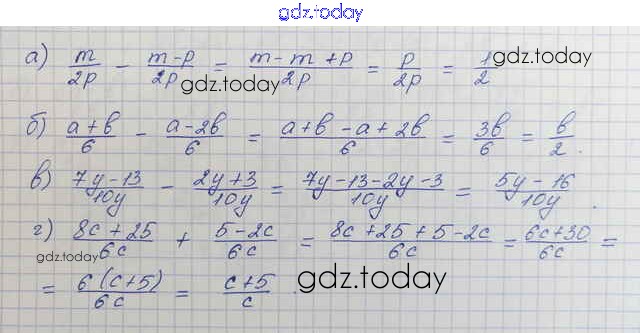 gdz.today
а) m/2p − m−p/2p = m−m+p/2p = p/2p = 1/2
gdz.today
gdz.today
б) a+b/6 − a−2b/6 = a+b−a+2b/6 = 3b/6 = b/2.
в) 7y−13/10y − 2y+3/10y = 7y−13−2y−3/10y = 5y−16/10y.
г) 8c+25/6c + 5−2c/6c = 8c+25+5−2c/6c = 6c+30/6c =
gdz.today
= 6(c+5)/6c = c+5/c.
gdz.today